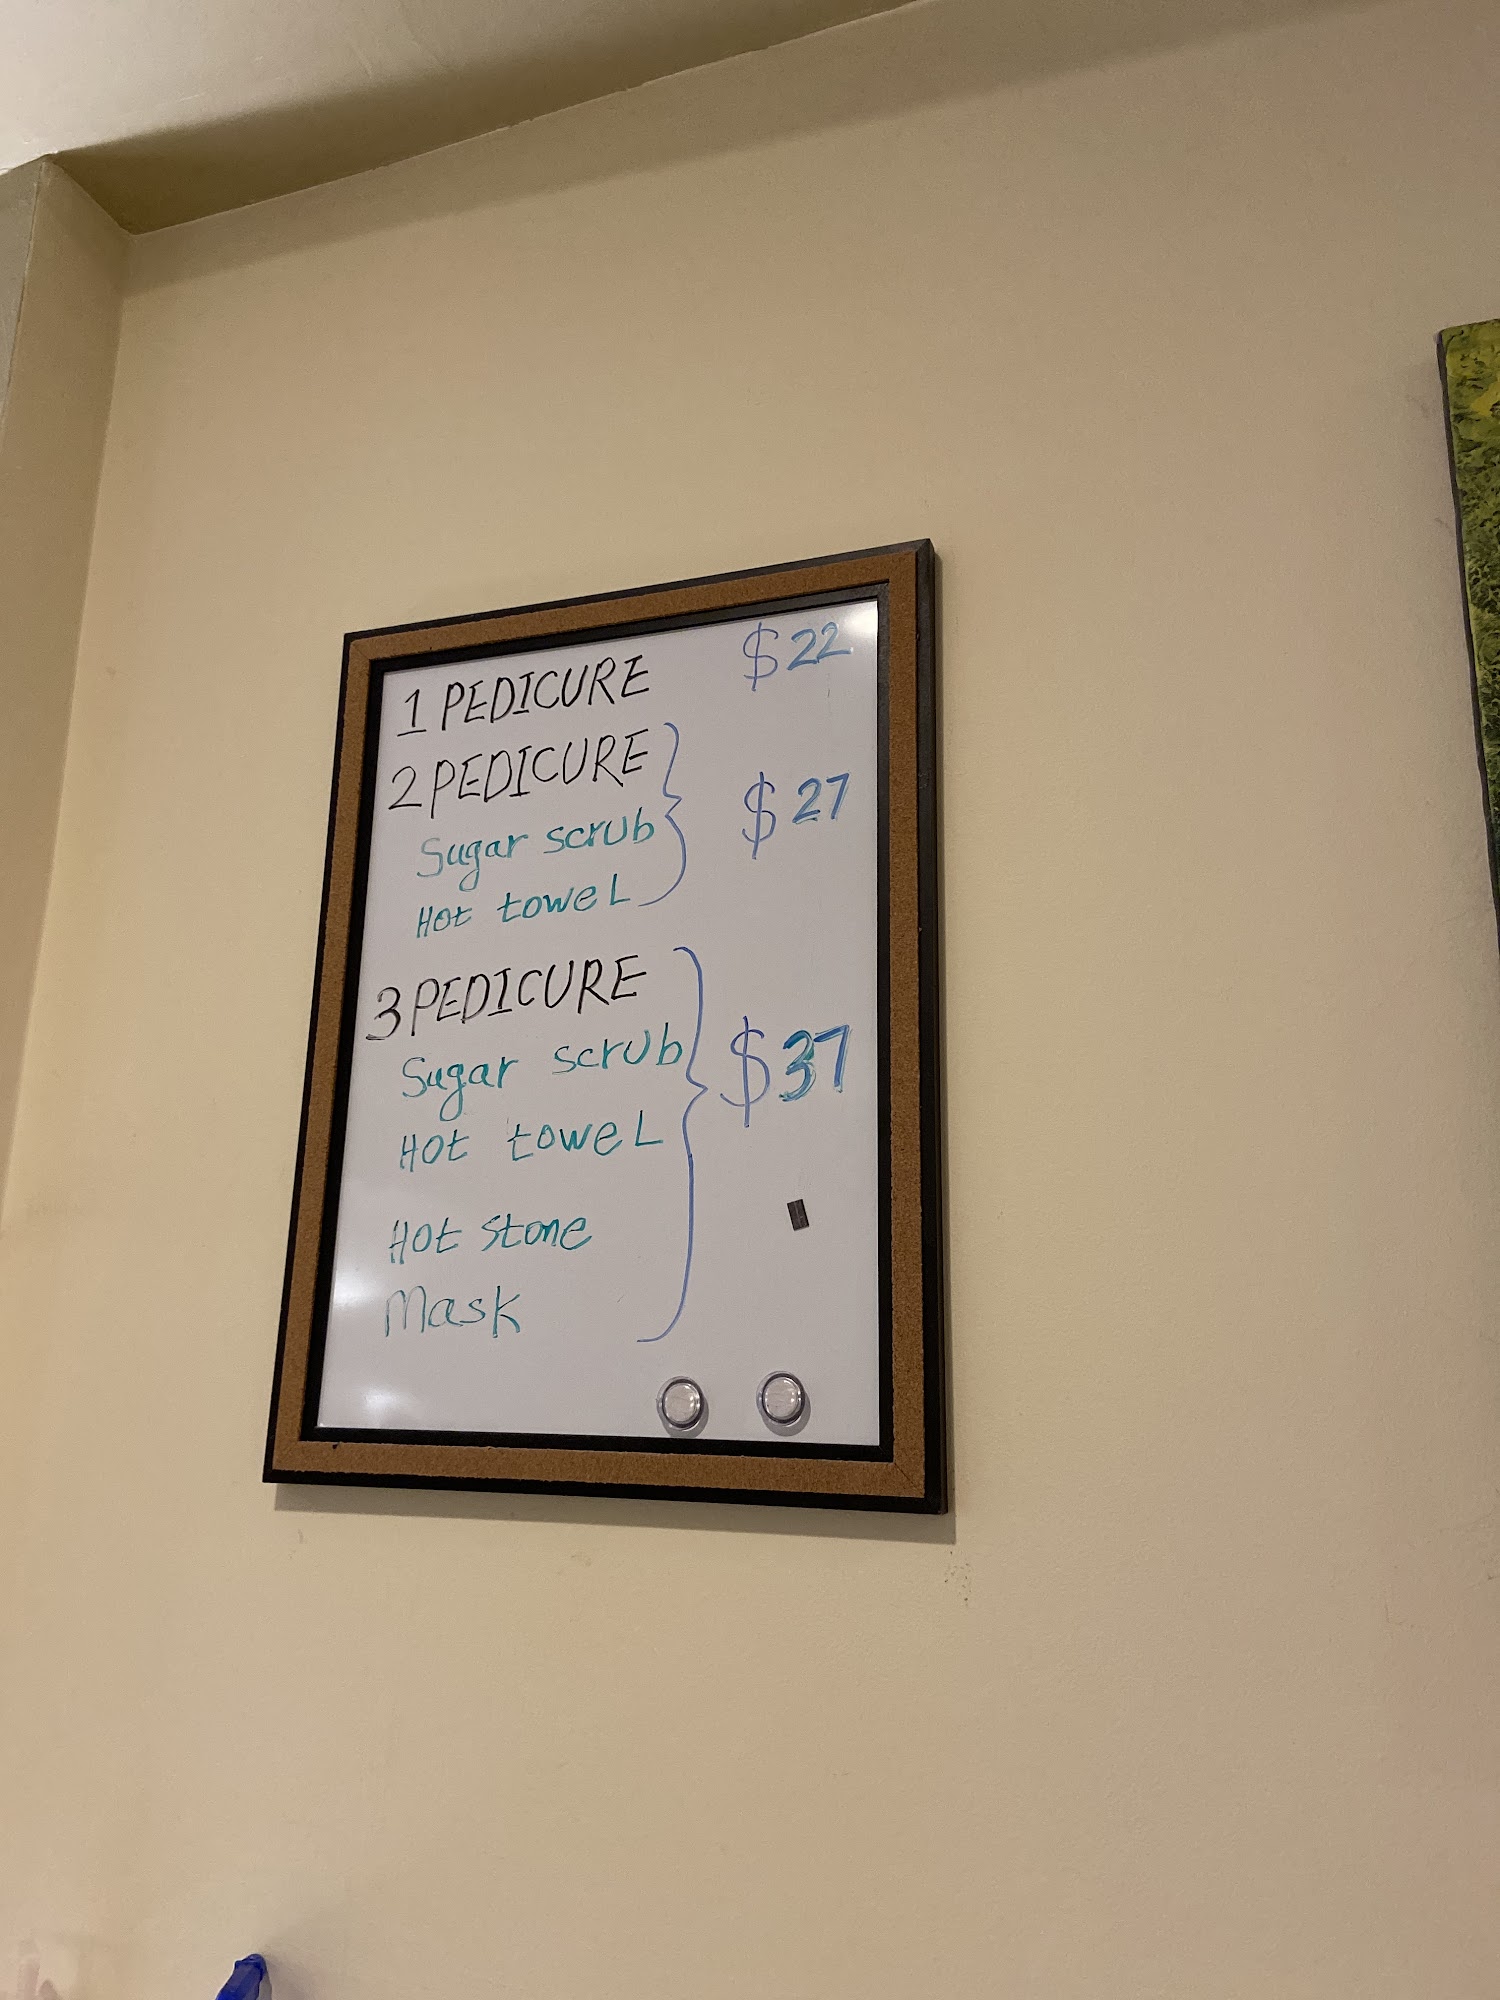 1 PEDICURE $22
2 PEDICURE
Sugar scrub $27
Hot towel
3 PEDICURE
Sugar scrub $37
Hot towel
Hot stone
Mask